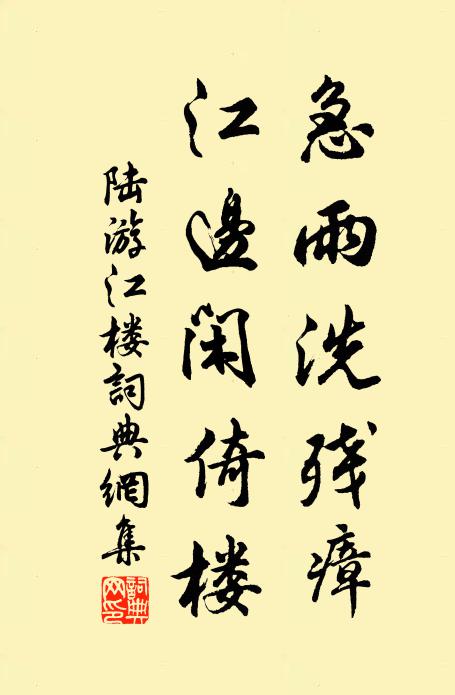 急雨洗残瘴
江邊閑倚楼
陆游江楼詞典網集
詞典网印